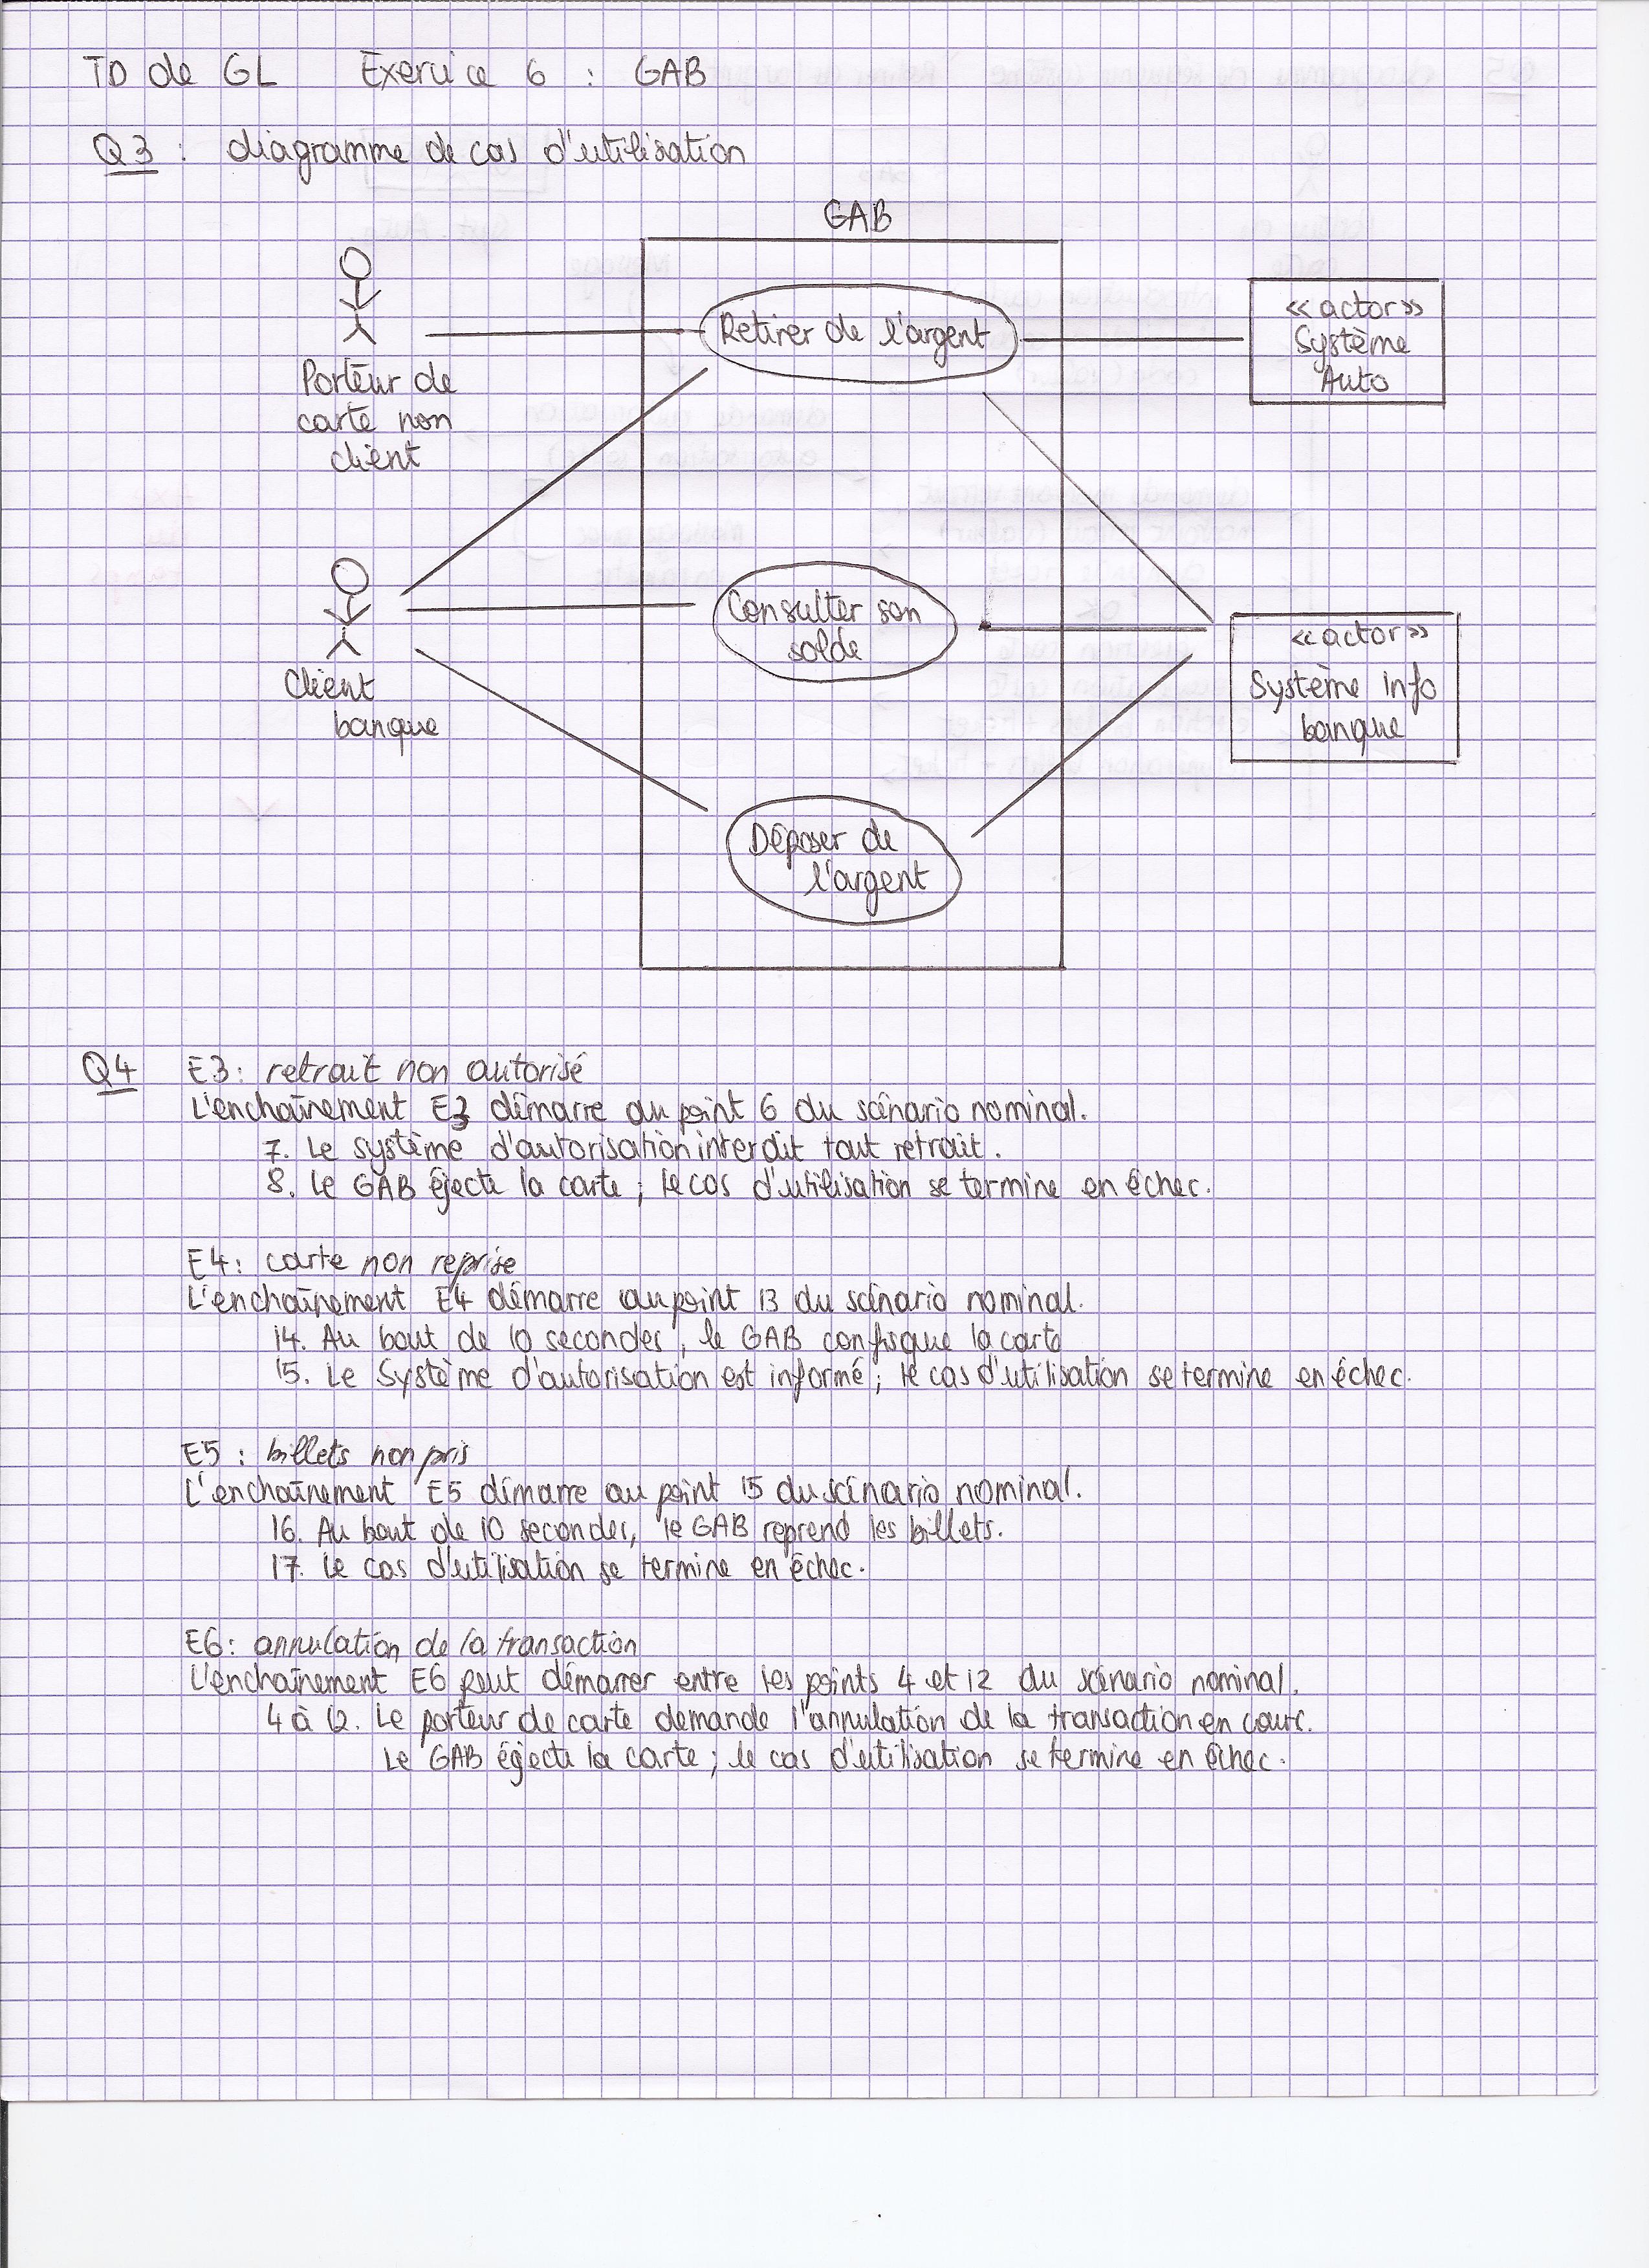 TD de GL Exercice 6 : GAB
Q3 : diagramme de cas d'utilisation
GAB
Retirer de l'argent
«actor»
Système
Auto
Porteur de
carte non
client
Consulter son
solde
«actor»
Système Info
banque
Client
banque
Déposer de
l'argent
Q4 E3: retrait non autorisé
L'enchaînement E3 démarre au point 6 du scénario nominal.
7. Le système d'autorisation interdit tout retrait.
8. Le GAB éjecte la carte ; le cas d'utilisation se termine en échec.
E4: carte non reprise
L'enchaînement E4 démarre au point 13 du scénario nominal.
14. Au bout de 10 secondes, le GAB confisque la carte
15. Le Système d'autorisation est informé ; le cas d'utilisation se termine en échec.
E5 : billets non pris
L'enchaînement E5 démarre au point 15 du scénario nominal.
16. Au bout de 10 secondes, le GAB reprend les billets.
17. Le cas d'utilisation se termine en échec.
E6: annulation de la transaction
L'enchaînement E6 peut démarrer entre les points 4 et 12 du scénario nominal.
4 à 12. Le porteur de carte demande l'annulation de la transaction en cours.
Le GAB éjecte la carte ; le cas d'utilisation se termine en échec.